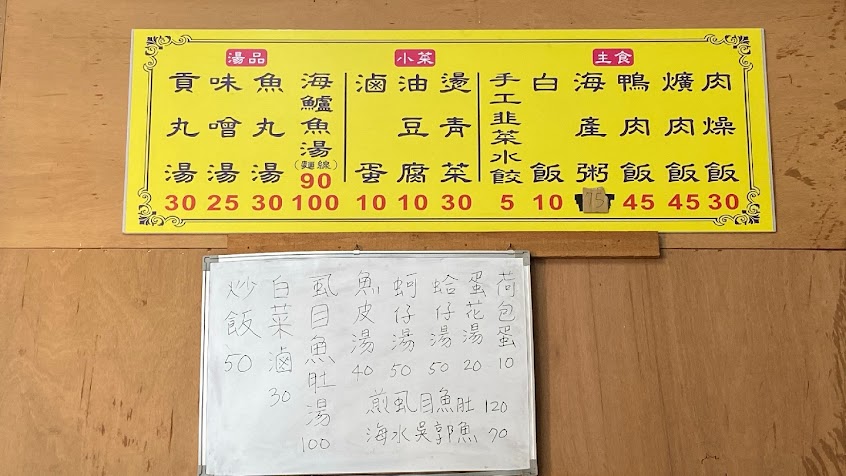 主食
肉燥飯 30
爌肉飯 45
鴨肉飯 45
海產粥 75
白飯 10
手工韭菜水餃 5
小菜
燙青菜 30
油豆腐 10
滷蛋 10
湯品
海鱸魚湯(麵線) 90 100
魚丸湯 30
味噌湯 25
貢丸湯 30
荷包蛋 10
蛋花湯 20
蛤仔湯 50
蚵仔湯 50
魚皮湯 40
虱目魚肚湯 100
白菜滷 30
炒飯 50
煎虱目魚肚 120
海水吳郭魚 70